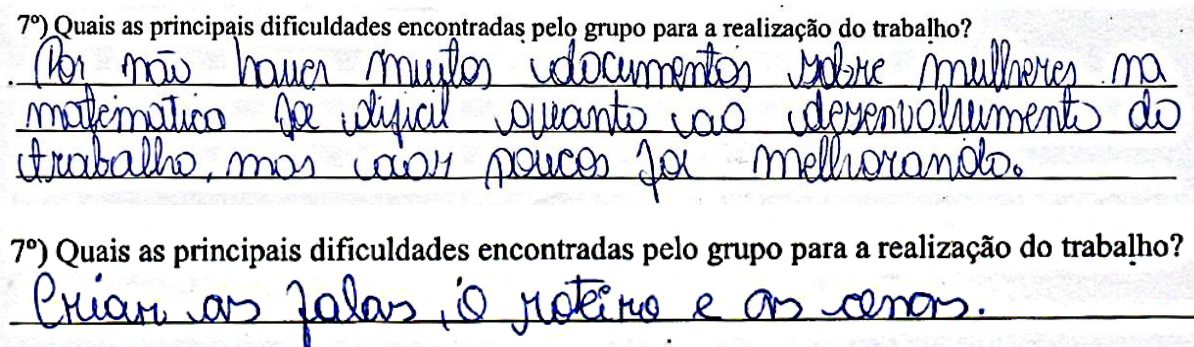 7º) Quais as principais dificuldades encontradas pelo grupo para a realização do trabalho?
Por não haver muitos documentos sobre mulheres na
matematica foi dificil quanto ao desenvolvimento do
trabalho, mas aos poucos foi melhorando.
7º) Quais as principais dificuldades encontradas pelo grupo para a realização do trabalho?
Criar as falas, o roteiro e as cenas.